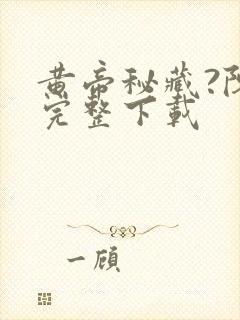 黄帝秘藏?阴
完整下载
一顾